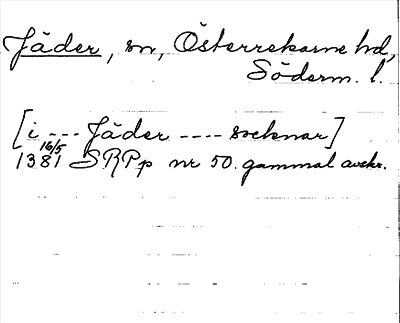 Jäder, sn, Österrekarne hd,
Söderm. l.
[i --- Jäder ---- socknar]
16/5
1381 SRPp nr 50. gammal avskr.